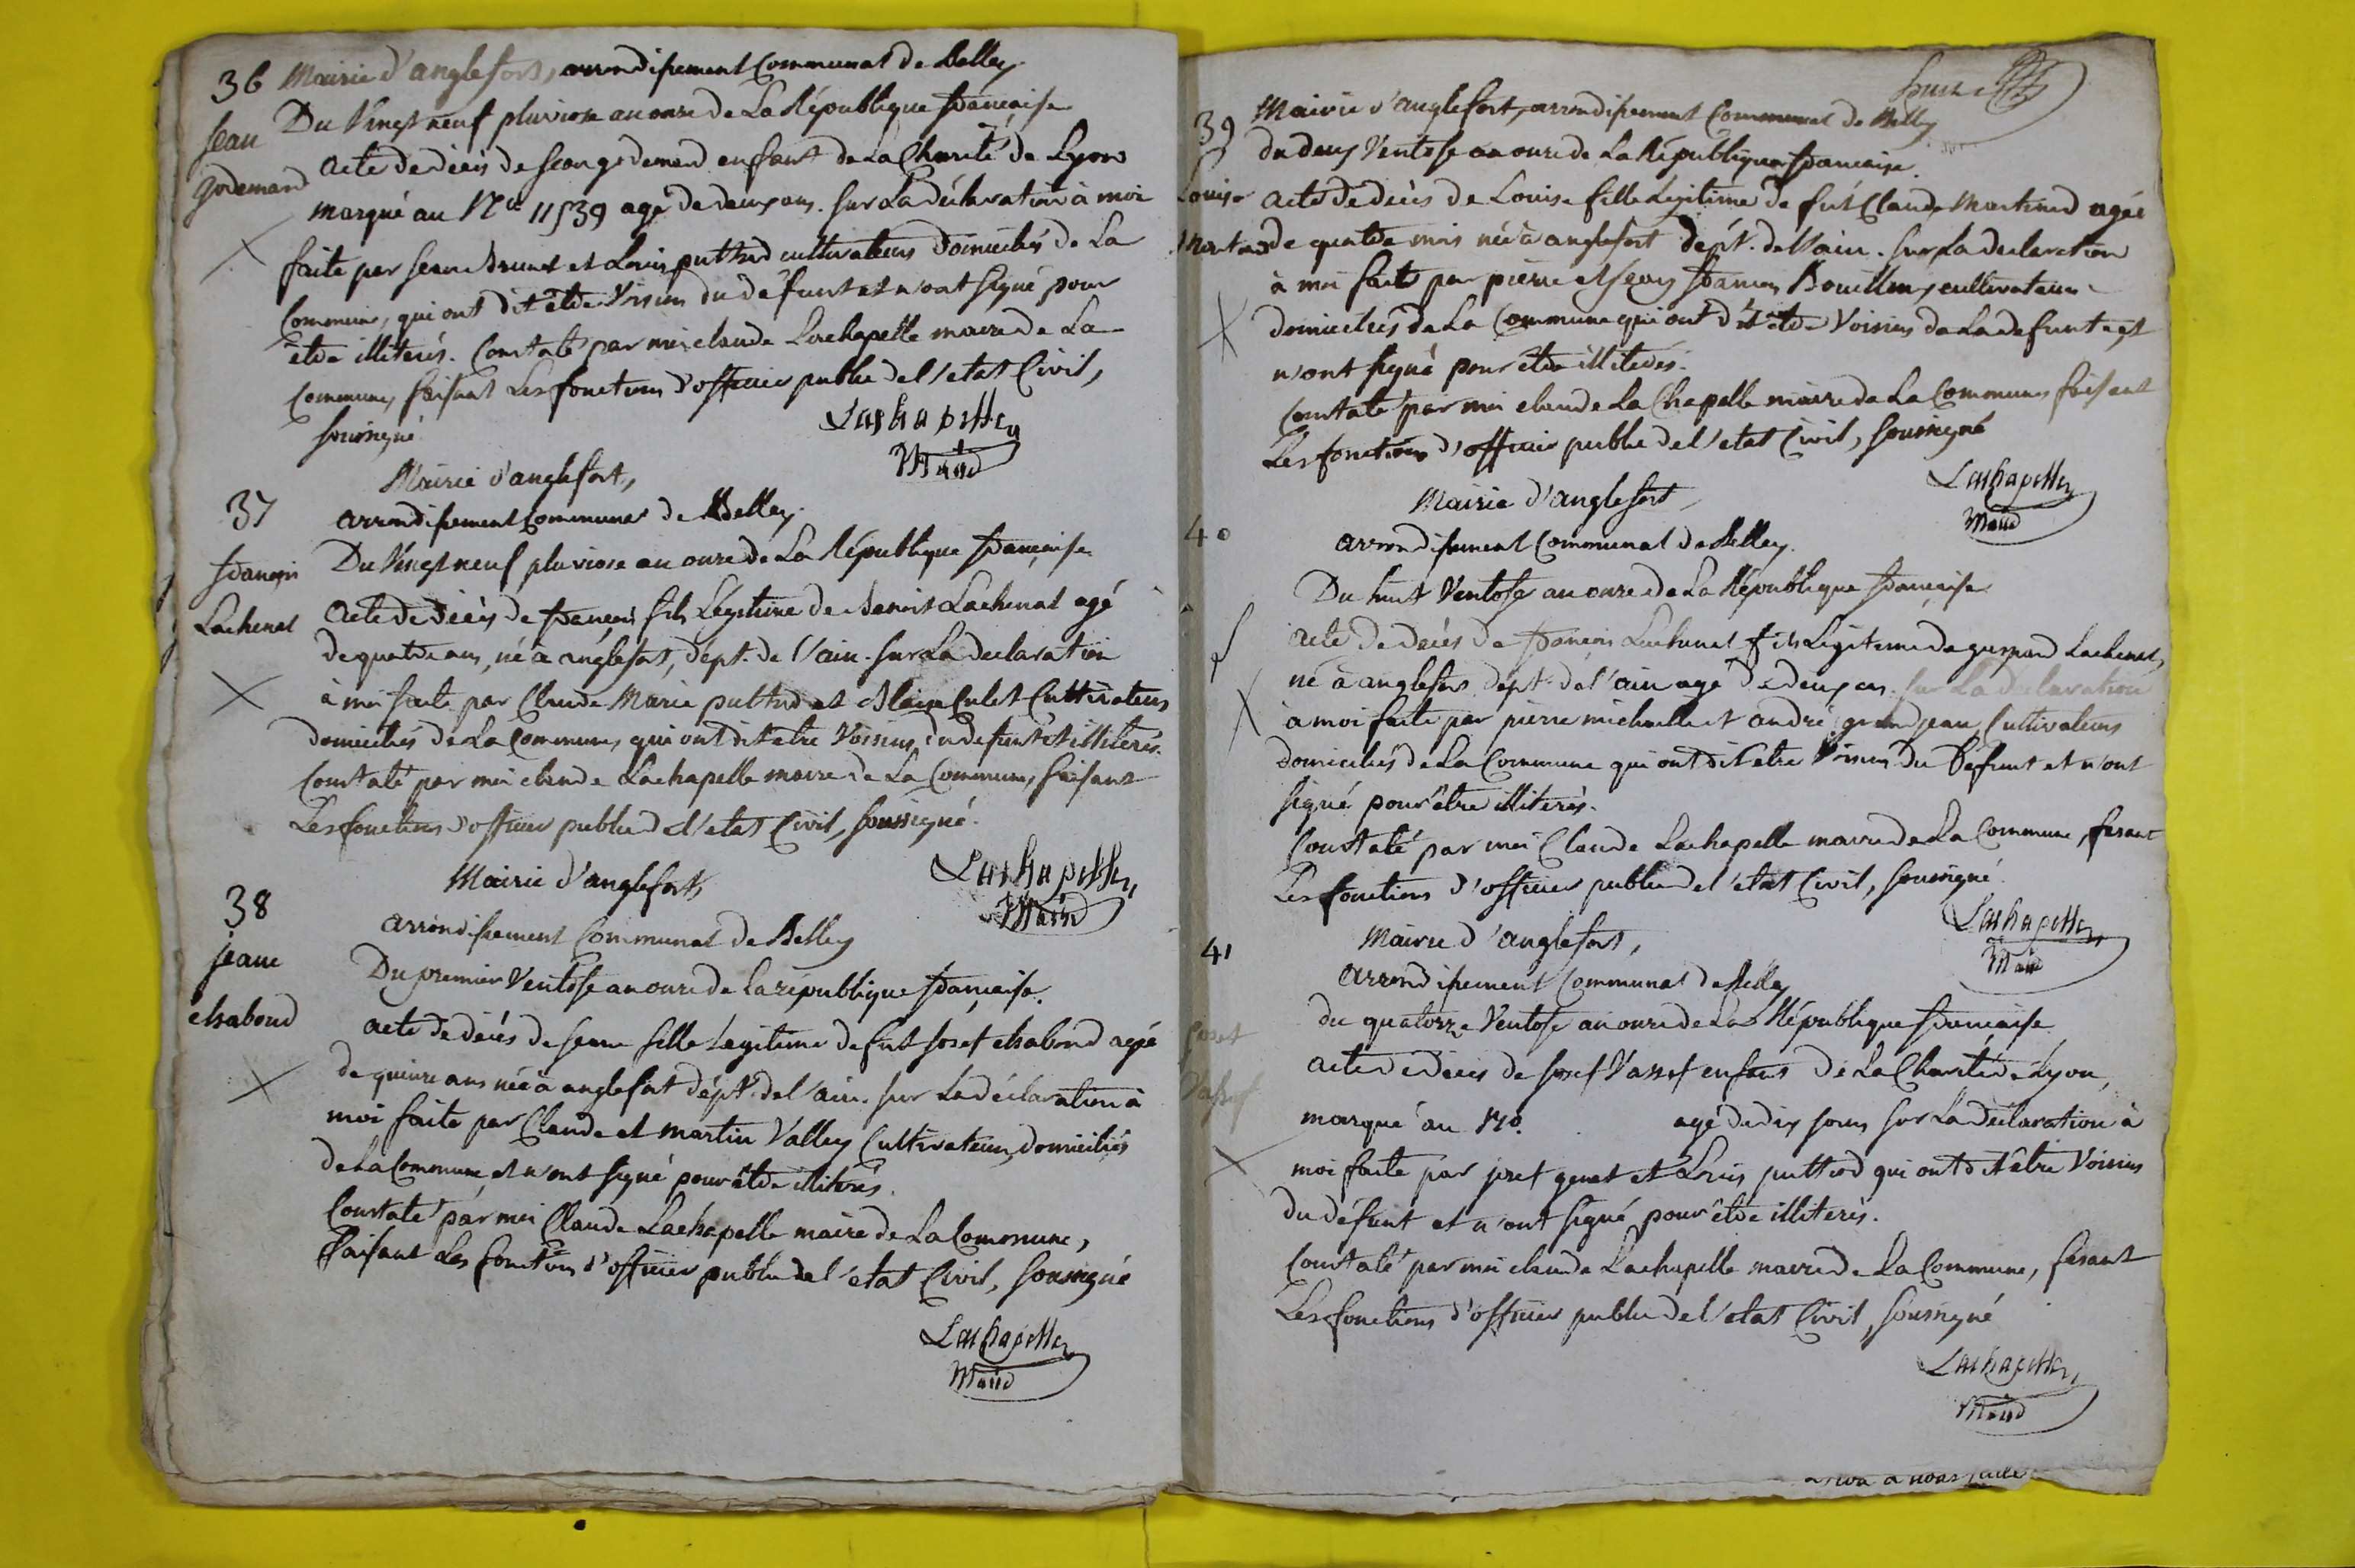 36 Mairie d'anglefort, arrondissement Communal de Belley
Du Vingt neuf pluviose an onze de La République française
Jean
godemard
acte de décès de Jean godemard enfant de La Charité de Lyon
marqué au N° 11539 agé de deux ans. sur La déclaration à moi
faite par Jean brunet et Louis puthod cultivateurs domiciliés de La
Commune, qui ont dit être Voisins du défunt et n'ont signé pour
être illiterés. Constaté par moi claude Lachapelle maire de La
Commune, faisant Les fonctions d'officier public de l'etat Civil,
soussigné
Lachapelle
Maire
37
Mairie d'anglefort,
arrondissement Communal de Belley.
Du Vingt neuf pluviose an onze de La République française
françois
Lachenal
acte de décès de françois fils Légitime de benoit Lachenal agé
de quatre ans, né à anglefort, dépt. de l'ain. sur La declaration
à moi faite par Claude Marie puthod et Blaise Culet Cultivateurs
domiciliés de La Commune, qui ont dit etre Voisins du defunt et illiterés.
Constaté par moi claude Lachapelle maire de La Commune, faisant
Les fonctions d'officier public de l'etat Civil, soussigné.
Lachapelle
Maire
38
Mairie d'anglefort
arrondissement Communal de Belley
jeane
chaboud
Du premier Ventose an onze de la république française.
acte de décès de jeane fille Légitime de fut josef chaboud agée
de quinze ans née à anglefort dépt. de l'ain. sur La déclaration à
moi faite par Claude et martin Valley Cultivateurs, domiciliés
de La Commune, et n'ont signé pour être illiterés.
Constaté par moi Claude Lachapelle maire de La Commune,
faisant Les fonctions d'officier public de l'etat Civil, soussigné
Lachapelle
Maire
39 Mairie d'anglefort, arrondissement Communal de Belley
du deux Ventose an onze de La République française.
Louise
acte de décès de Louise fille Légitime de fut Claude Martinod agée
de quatre mois née à anglefort dépt. de l'ain. sur La declaration
à moi faite par pierre et françois Bouillon, cultivateurs
domiciliés de La Commune qui ont dit être Voisins de La defunte et
n'ont signé pour être illiterés.
Constaté par moi claude La Chapelle maire de La Commune, faisant
Les fonctions d'officier public de l'etat Civil, soussigné
Lachapelle
Maire
40
Mairie d'anglefort
arrondissement Communal de Belley.
Du huit Ventose an onze de La République française
acte de décès de françois Lachenal fils Légitime de Lachenal,
né à anglefort dépt. de l'ain agé de deux ans. sur La declaration
à moi faite par pierre michaillet andré grandjean, Cultivateurs
domiciliés de La Commune qui ont dit etre Voisins Du Défunt et n'ont
signé pour être illiterés.
Constaté par moi Claude Lachapelle maire de La Commune, fesant
Les fonctions d'officier public de l'etat Civil, soussigné.
Lachapelle
Maire
41
Mairie d'anglefort,
arrondissement Communal de Belley
du quatorze Ventose an onze de La République française
josef
Vassef
acte de décès de josef Vassef enfant de La Charité de Lyon,
marqué au N°. agé de dix jours sur La déclaration à
moi faite par josef genet et Louis puthod qui ont dit être Voisins
du défunt et n'ont signé pour être illiterés.
Constaté par moi claude Lachapelle maire de La Commune, fesant
Les fonctions d'officier public de l'etat Civil, soussigné
Lachapelle
Maire